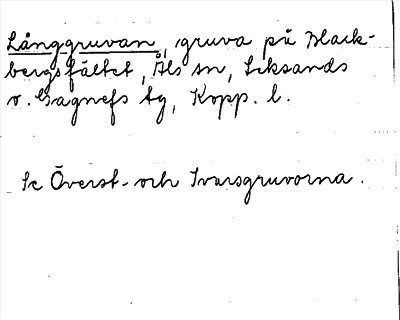 Långgruvan, gruva på Mack-
bergsfältet, Åls sn, Leksands
o. Gagnefs tg, Kopp. l.
Se Överst- och Ivarsgruvorna.